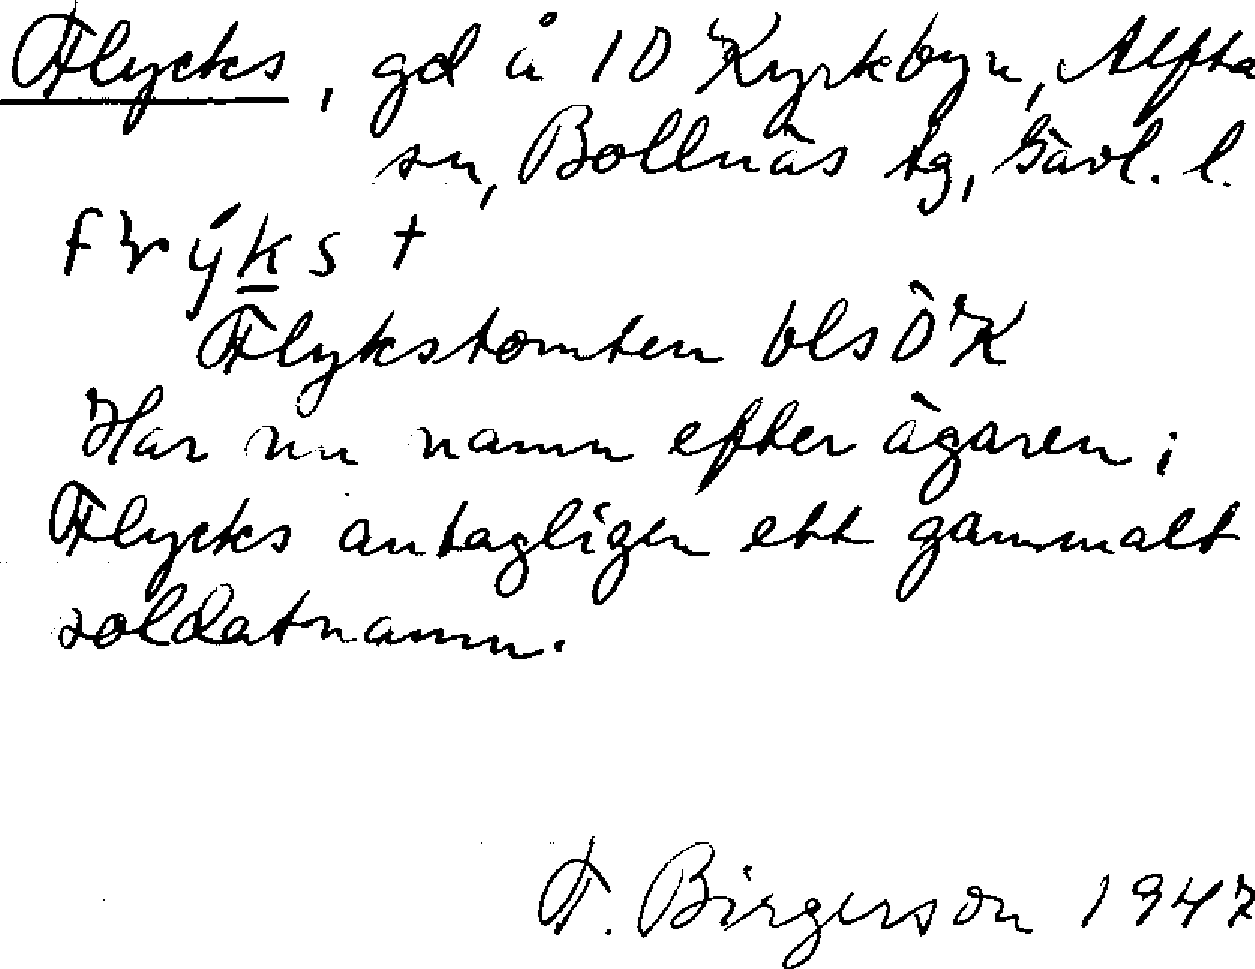 Flycks, gd å 10 Kyrkbyn, Alfta
sn, Bollnäs tg, Gävl. l.
Flykstomten
Har nu namn efter ägaren;
Flycks antagligen ett gammalt
soldatnamn.
F. Birgerson 1947